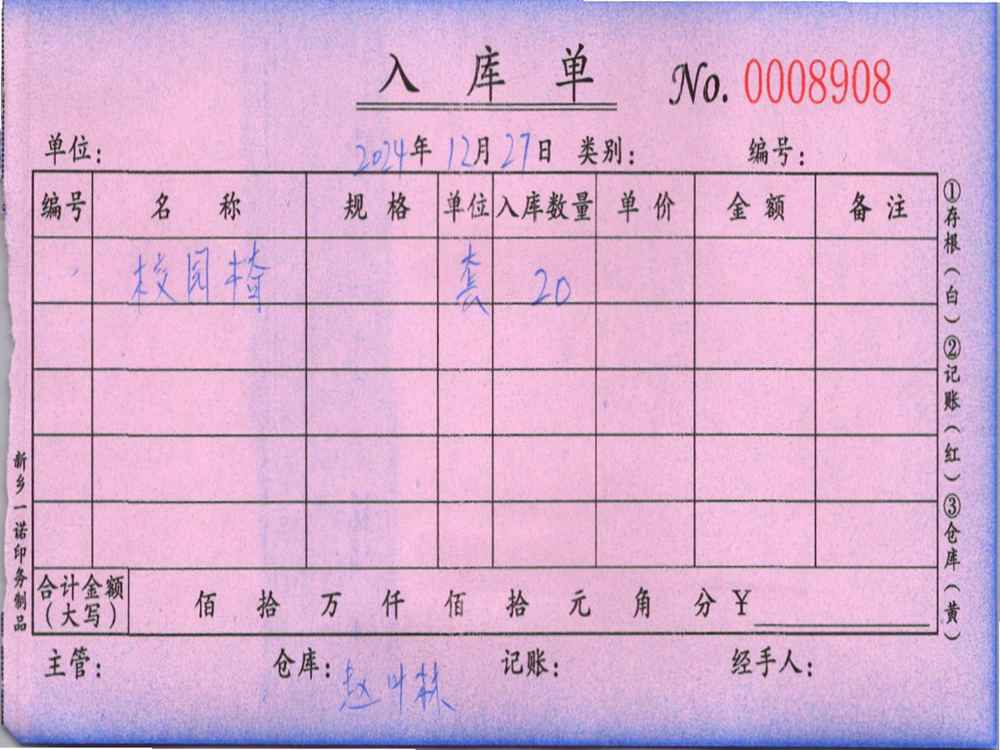 入库单 No. 0008908
单位： 2024年12月27日 类别： 编号：
编号 名称 规格 单位 入库数量 单价 金额 备注
校园椅 套 20
合计金额（大写） 佰 拾 万 仟 佰 拾 元 角 分 ¥
主管： 仓库：赵叶 记账： 经手人：
①存根（白）②记账（红）③仓库（黄）
新乡一诺印务制品